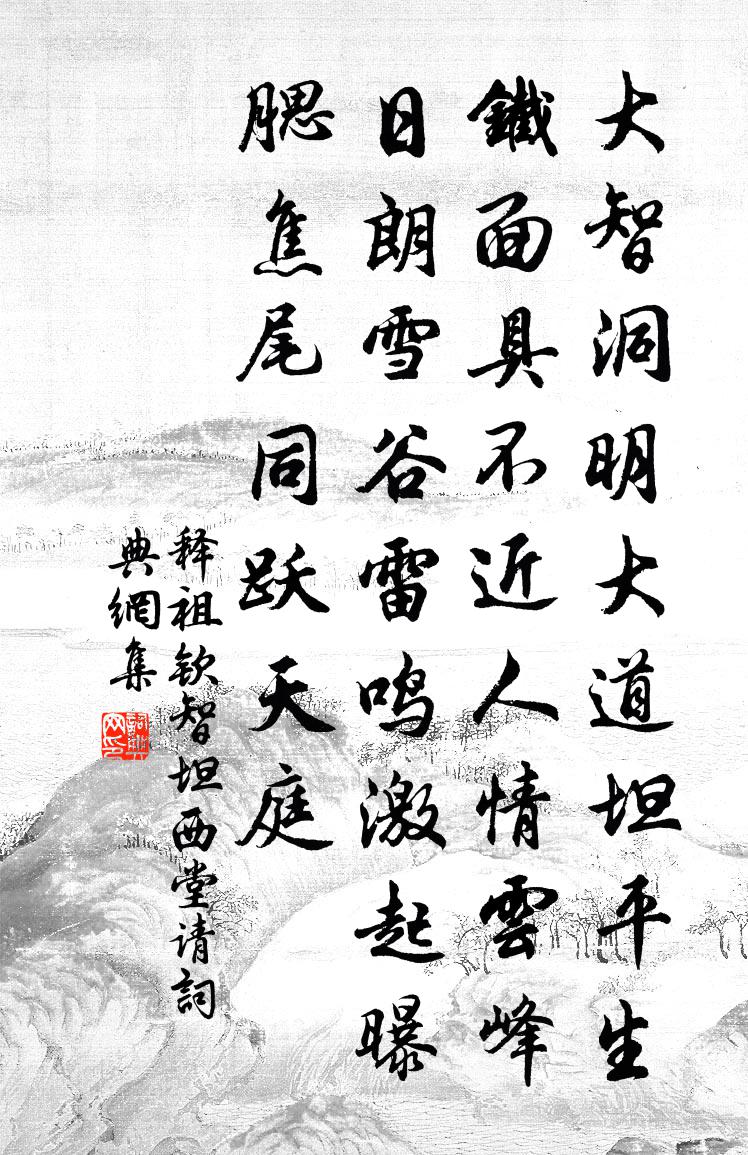 大智洞明大道坦平生
鐵面具不近人情雲峰
日朗雪谷雷鸣激起曝
腮焦尾同跃天庭
释祖钦智坦西堂请詞
典網集